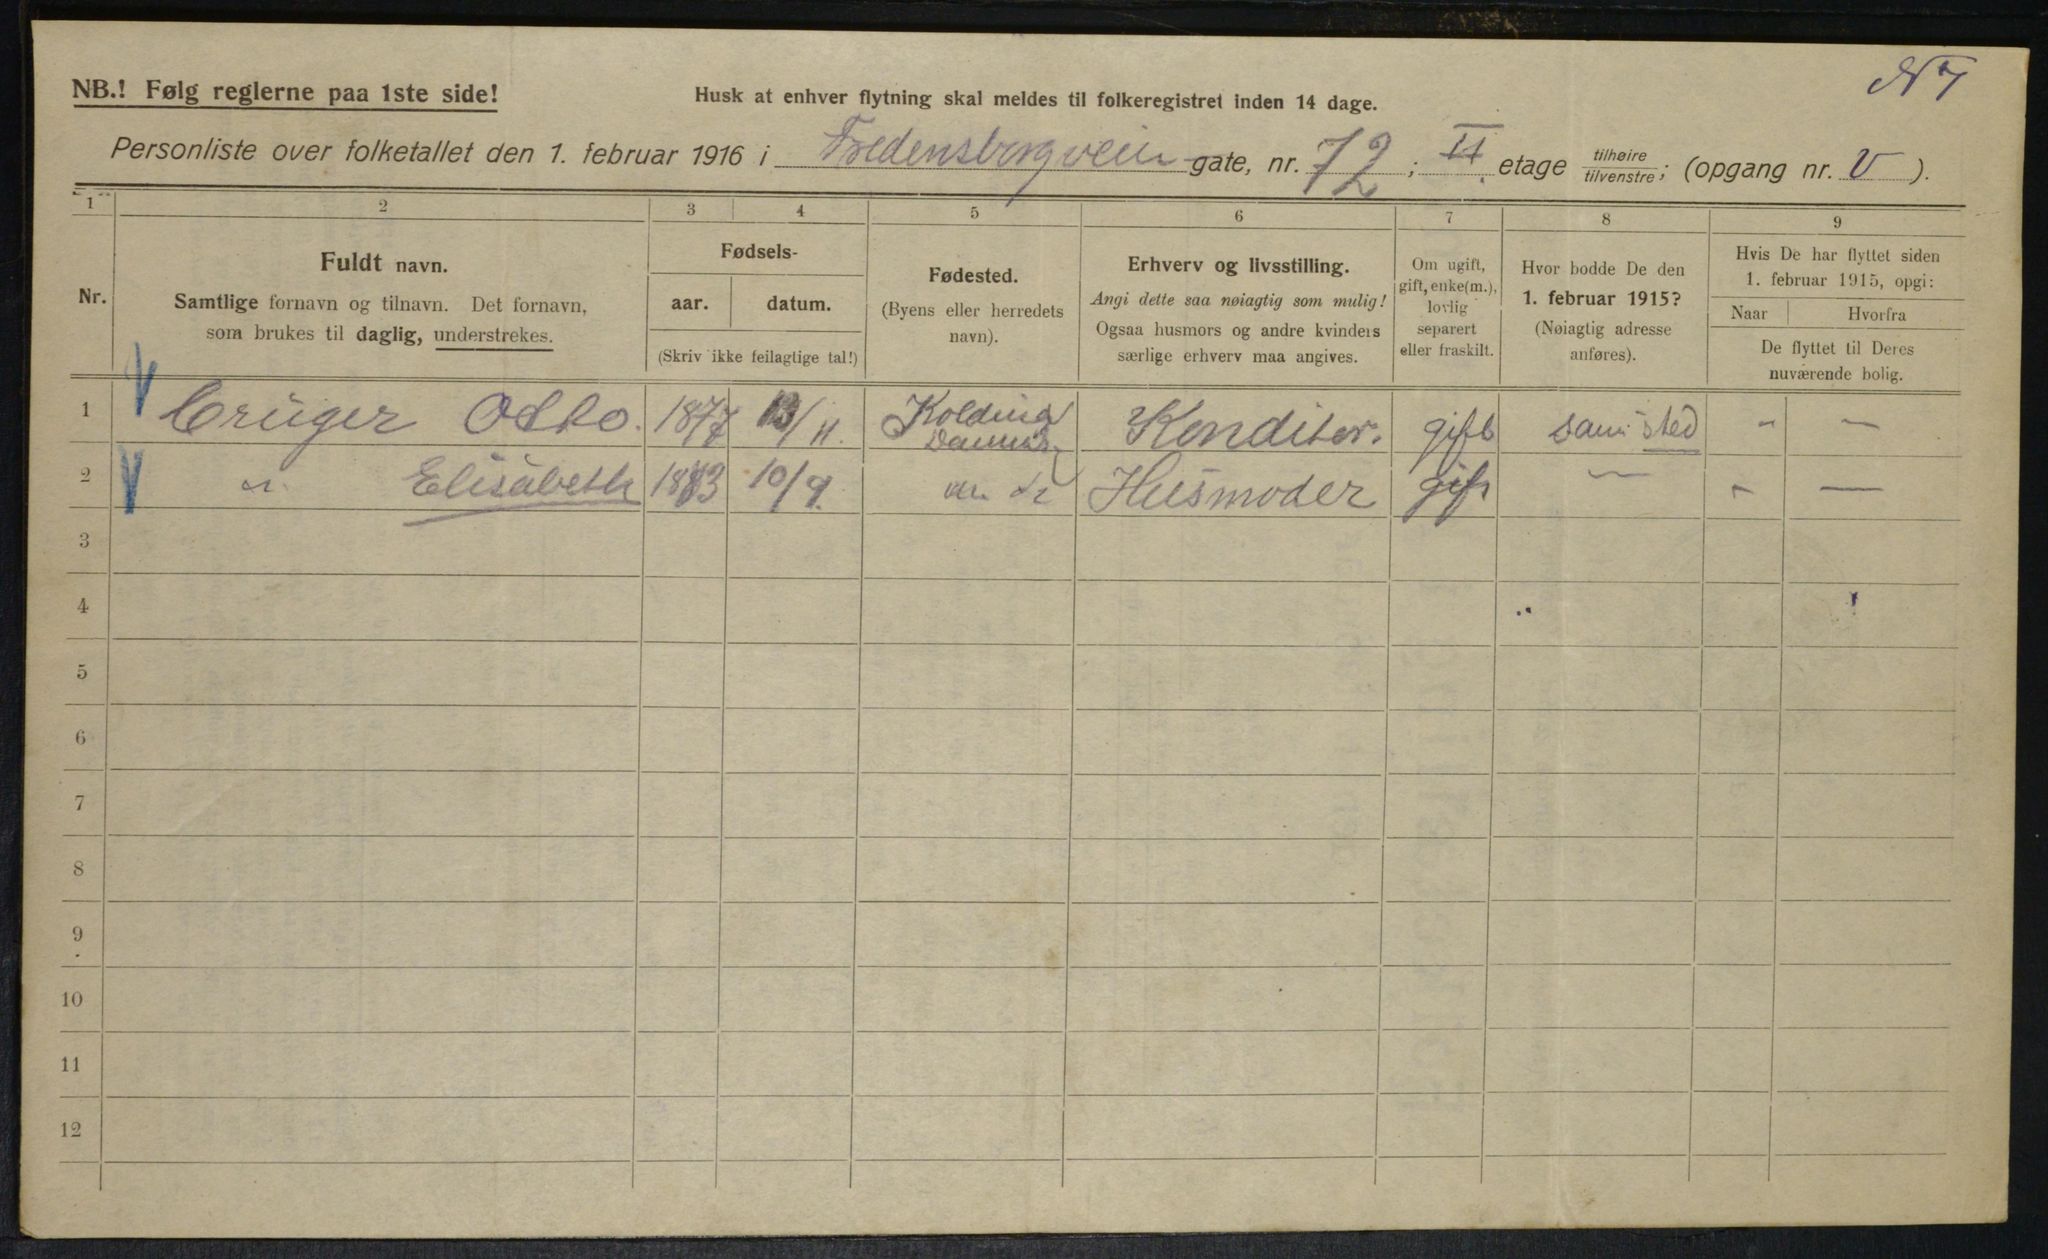 NB.! Følg reglerne paa 1ste side!
Husk at enhver flytning skal meldes til folkeregistret inden 14 dage.
Personliste over folketallet den 1. februar 1916 i Fredensborgveien gate, nr. 72 ; II. etage tilhøire / tilvenstre ; (opgang nr. V ).
1 2 3 4 5 6 7 8 9
Nr.
Fuldt navn.
Samtlige fornavn og tilnavn. Det fornavn,
som brukes til daglig, understrekes.
Fødsels-
aar. datum.
(Skriv ikke feilagtige tal!)
Fødested.
(Byens eller herredets
navn).
Erhverv og livsstilling.
Angi dette saa nøiagtig som mulig!
Ogsaa husmors og andre kvinders
særlige erhverv maa angives.
Om ugift,
gift, enke(m.),
lovlig
separert
eller fraskilt.
Hvor bodde De den
1. februar 1915?
(Nøiagtig adresse
anføres).
Hvis De har flyttet siden
1. februar 1915, opgi:
Naar Hvorfra
De flyttet til Deres
nuværende bolig.
1 Crüger Otto. 1877 13/11. Kolding Konditor. gift sam sted - —
2 Elisabeth 1883 10/9. Husmoder gift — - —
3
4
5
6
7
8
9
10
11
12